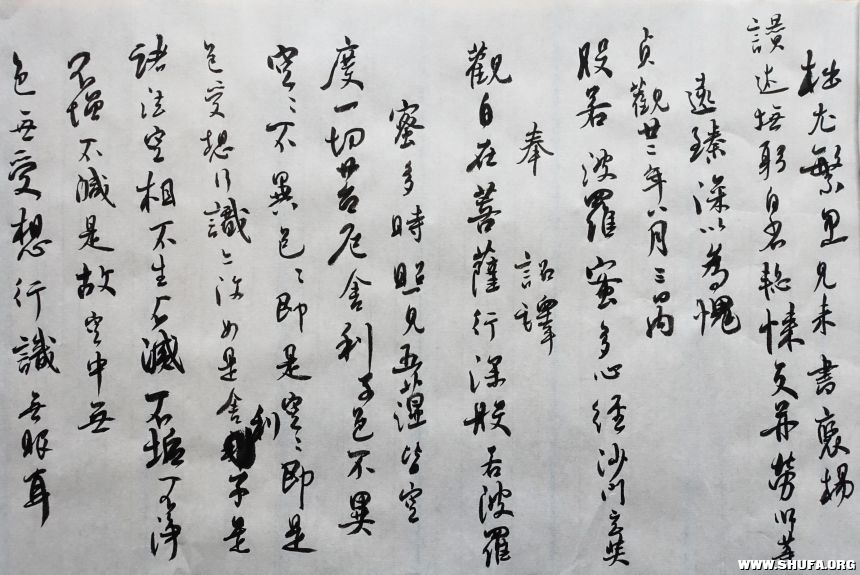 拙尤繁忽見來書褒揚
讚述撫躬自省慙悚交并勞師等
遠臻深以為愧
貞觀廿二年八月三日內
般若波羅蜜多心經沙門玄奘
奉 詔譯
觀自在菩薩行深般若波羅
蜜多時照見五蘊皆空
度一切苦厄舍利子色不異
空〻不異色〻即是空〻即是
色受想行識亦復如是舍利子是
諸法空相不生不滅不垢不淨
不增不減是故空中無
色無受想行識無眼耳
WWW.SHUFA.ORG